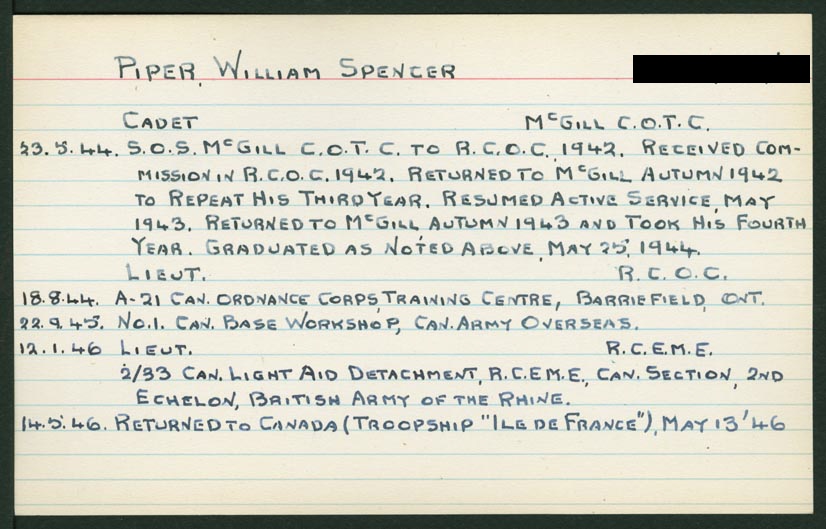 PIPER, WILLIAM SPENCER
CADET McGILL C.O.T.C.
23.5.44. S.O.S. McGILL C.O.T.C. TO R.C.O.C., 1942. RECEIVED COM-
MISSION IN R.C.O.C. 1942. RETURNED TO McGILL AUTUMN 1942
TO REPEAT HIS THIRD YEAR. RESUMED ACTIVE SERVICE, MAY
1943. RETURNED TO McGILL AUTUMN 1943 AND TOOK HIS FOURTH
YEAR. GRADUATED AS NOTED ABOVE, MAY 25, 1944.
LIEUT. R.C.O.C.
18.8.44. A-21 CAN. ORDNANCE CORPS TRAINING CENTRE, BARRIEFIELD, ONT.
22.9.45. NO.1. CAN. BASE WORKSHOP, CAN. ARMY OVERSEAS.
12.1.46 LIEUT. R.C.E.M.E.
2/33 CAN. LIGHT AID DETACHMENT, R.C.E.M.E., CAN. SECTION, 2ND
ECHELON, BRITISH ARMY OF THE RHINE.
14.5.46. RETURNED TO CANADA (TROOPSHIP "ILE DE FRANCE"), MAY 13/46